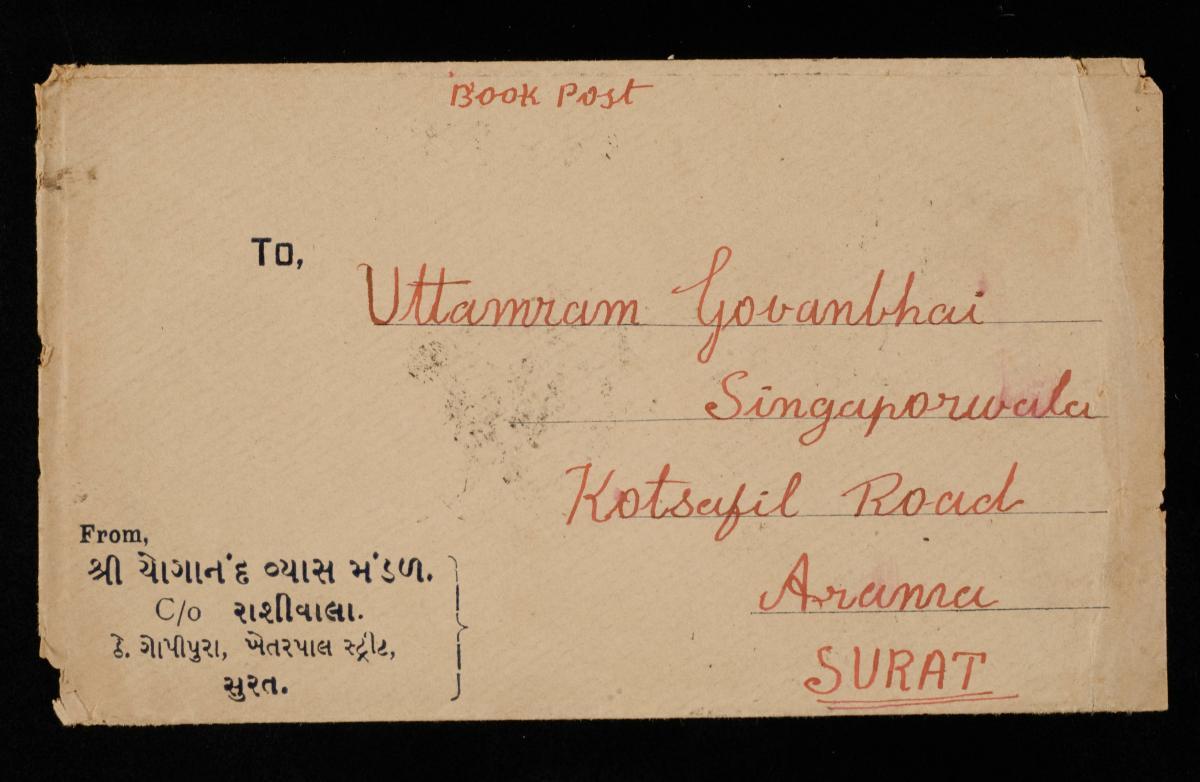 Book Post
To,
Uttamram Govanbhai
Singaporwala
Kotsafil Road
Arama
SURAT
From,
શ્રી યોગાનંદ વ્યાસ મંડળ.
C/o રાશીવાલા.
ઠે. ગોપીપુરા, ખેતરપાલ સ્ટ્રીટ,
સુરત.